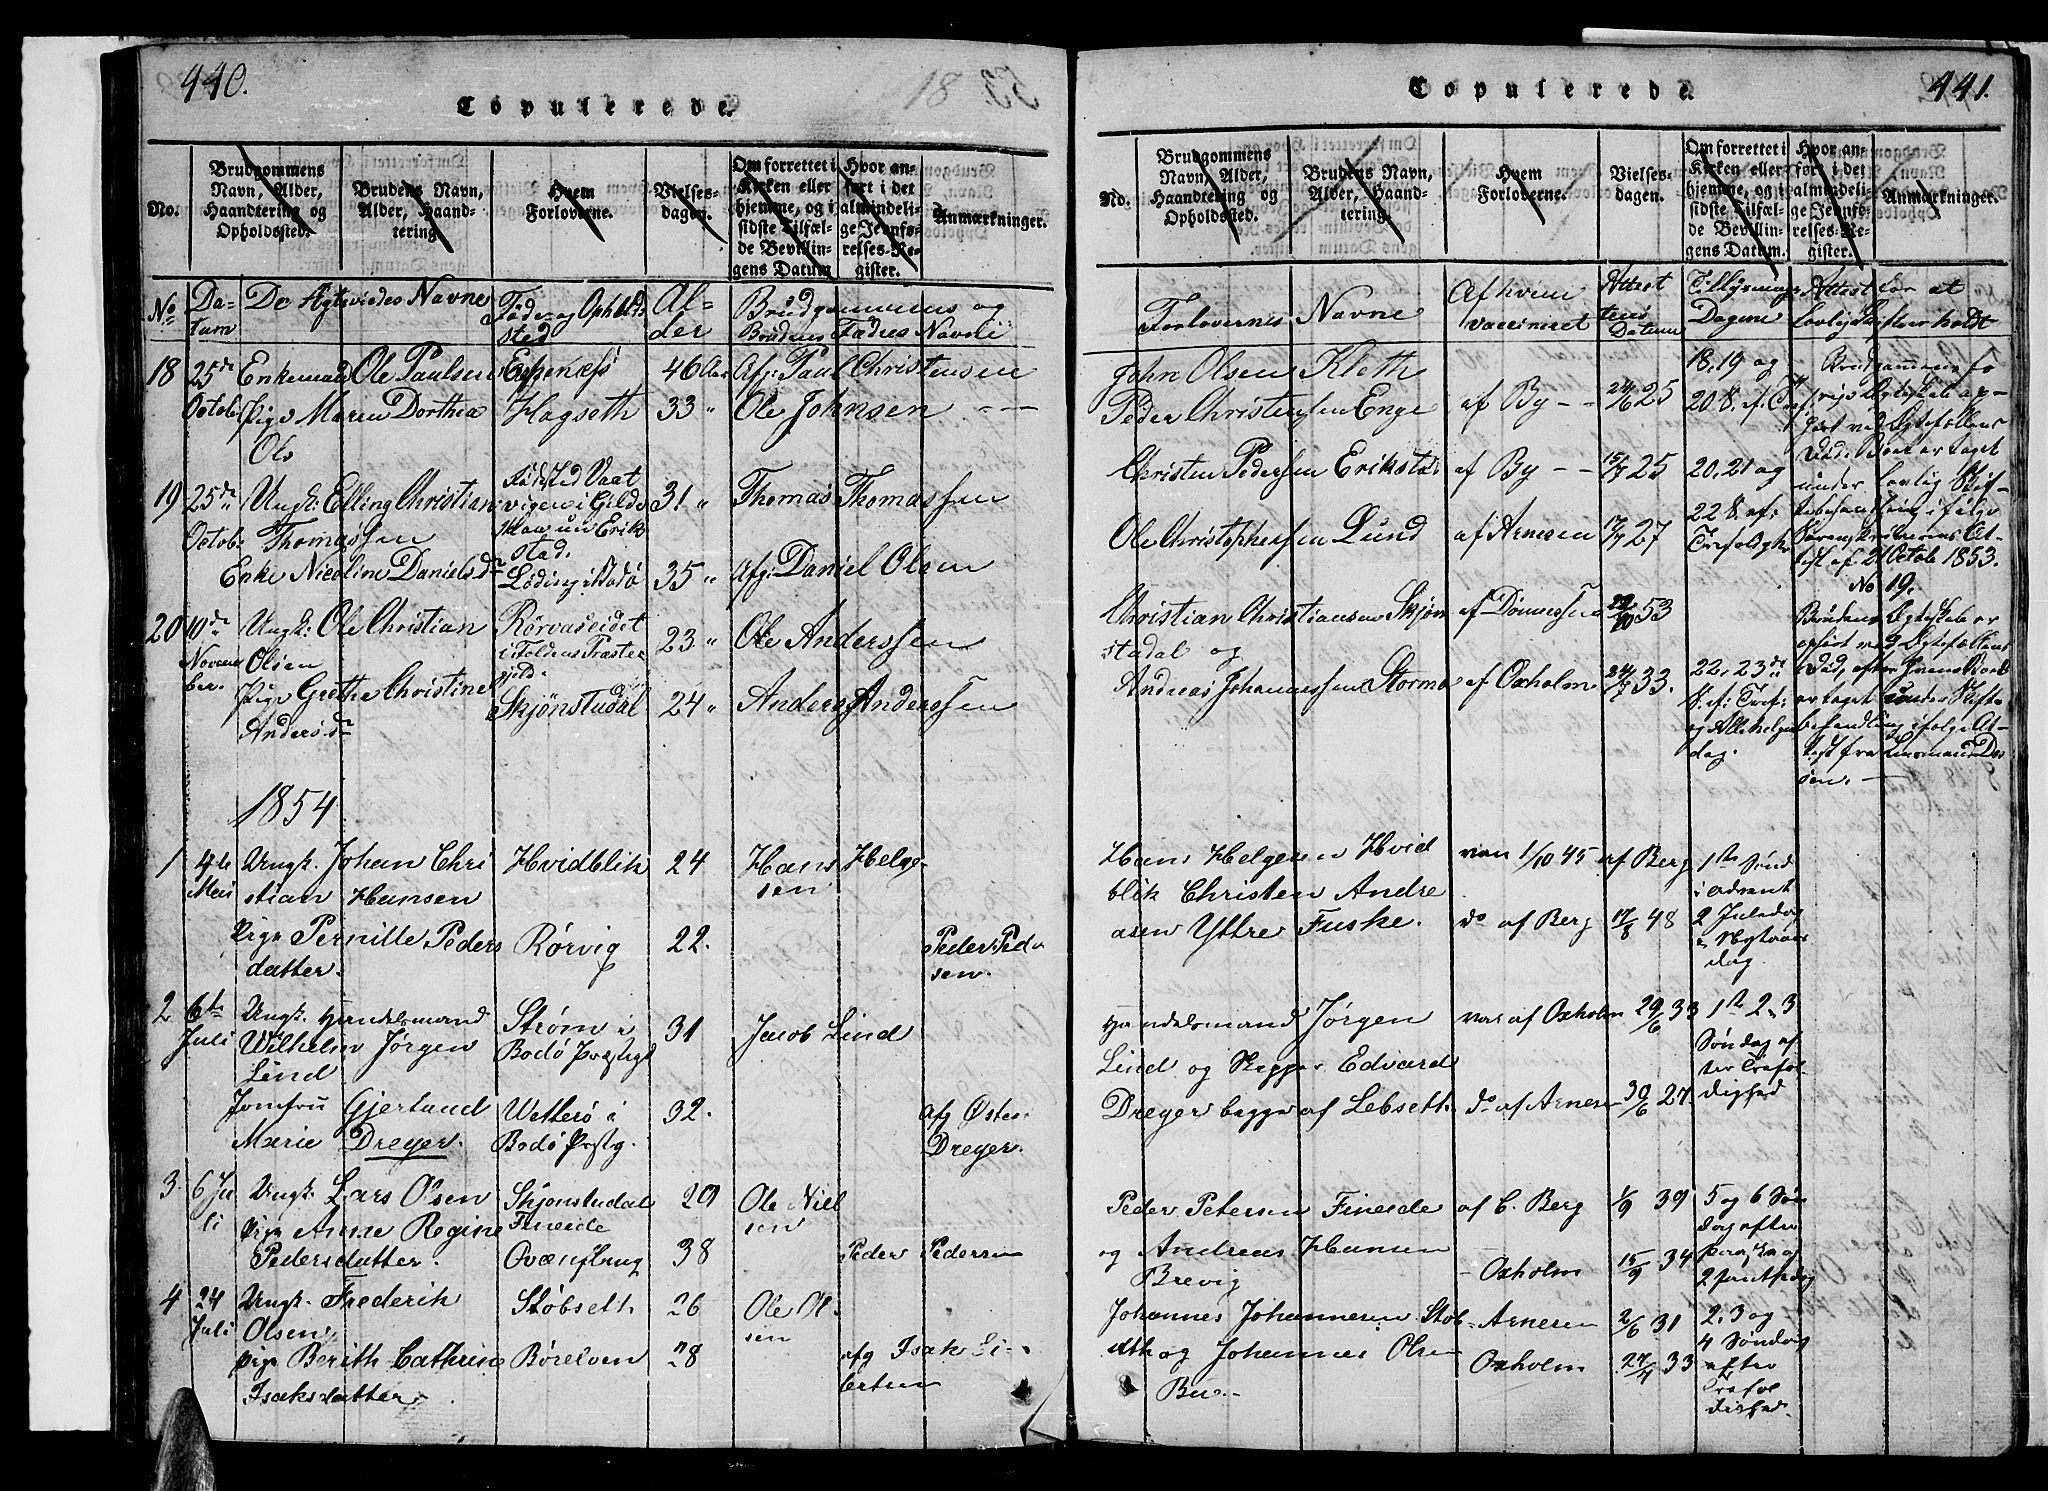 440.
Copulerede.
No.
Brudgommens
Navn, Alder,
Haandtering og
Opholdssted.
Brudens Navn,
Alder, Haand-
tering.
Hvem
Forloverne.
Vielses-
dagen.
Om forrettet i
Kirken eller
hjemme, og i
sidste Tilfæl-
de Bevillin-
gens Datum
Hvor an-
ført i det
almindeli-
ge Jevnfø-
relses-Re-
gister.
Anmærkninger.
No
Da-
tum
De Ægteviedes Navne
Føde- og Opholds
sted
Al-
der
Brudgommens og
Brudens Fadres Navne
18
25de
Octob:
Enkemand Ole Paulsen
Pige Maren Dorthea
Ols
Espenæss
Hagseth
46 Aar
33 "
Afg: Paul Christensen
Ole Johnsen
19
25de
Octob:
Ungk: Elling Christian
Thomassen
Enke Nicoline Danielsdr
Fødested Vaat
vigen i Gilde
skaar nu Erik
stad.
Løding i Bodø
31 "
35 "
Thomas Thomassen
Afg: Daniel Olsen
20
10de
Novem
ber.
Ungk: Ole Christian
Olsen
Pige Grethe Christine
Andersdr
Rørvaseidet
i Foldens Præste
gjeld.
Skjønstudal
23 "
24 "
Ole Anderssen
Anders Anderssen
1854
1
4de
Mai
Ungk. Johan Chri
stian Hansen
Pige Pernille Peders
datter.
Hvidblik
Rørvig
24
22.
Hans Helge-
sen
Peder Ped
sen.
2
6te
Juli
Ungk. Handelsmand
Wilhelm Jørgen
Lind
Jomfru Gjertrud
Marie Dreyer.
Strøm i
Bodø Præstegd
Wetterø i
Bodø Prstg.
31
32.
Jacob Lind
afg Østen
Dreyer.
3
6 Ju
li
Ungk. Lars Olsen
Pige Anne Regine
Pedersdatter.
Skjønstudal
Fineide
29
38
Ole Niel
sen
Peder Pedersen
4
24
Juli
Ungk. Frederik
Olsen.
Pige Berith Cathrine
Isaksdatter.
Støbseth
Børelven
26
28
Ole Ol
sen
afg Isak Si-
bertsen
441.
Copulerede.
No.
Brudgommens
Navn, Alder,
Haandtering og
Opholdssted.
Brudens Navn,
Alder, Haand-
tering.
Hvem
Forloverne.
Vielses-
dagen.
Om forrettet i
Kirken eller
hjemme, og i
sidste Tilfæl-
de Bevillin-
gens Datum.
Hvor an-
ført i det
almindeli-
ge Jevnfø-
relses-Re-
gister.
Anmærkninger.
Forlovernes Navne
Af hvem
vaccineret
Attest
tens
Datum
Tillysnings
Dagene
Attest for at
lovlig Skifte er holdt
John Olsen Kleth
Peder Christensen Enge
af By - -
24/6 25
18. 19 og
20 S. ef: Tref
Brudgommens fo
rrige Ægteskab op-
hørt ved Ægtefællens
Død. Boet er taget
under lovlig Skif-
tebehandling i følge
Sørenskriverens At-
test af 21 Octob 1853.
No 19.
Christen Pedersen Erikstad
af By - -
25
20. 21 og
22 S. ef:
Trefoldighd
Ole Christophersen Lund
af Arnesen
27
Christian Christiansen Skjøn
stadal og
af Dønnessen
53
Andreas Johannessen Stormo
af Oxholm
33.
22. 23de
S. ef: Tref:
og Allehelgens
dag.
Brudens Ægteskab er
ophørt ved Ægtefællens
Død, efter hvem Boet
er taget under Skifte
behandling i følge At-
test fra Lensmand
sen.
Hans Helgesen Hvid
blik Christen Andre
asen Yttre Fuske.
vac 1/10 45 af Berg
do af Berg 17/8 48
1te Sønd
i Advent
2 Juledag
Nytaars
dag.
Handelsmand Jørgen
Lind og Skipper Edvard
Dreyer begge af Løbseth
vac af Oxholm 29/6 33
do af Arnesen 30/6 27.
1te 2. 3
Søndag ef
ter Trefol-
dighed
Peder Petersen Fineide
og Andreas Hansen
Brevig
af C. Berg 1/9 39
- Oxholm 15/9 34
5 og 6 Søn
dag efter
Paaske og
2 Pintsedag
Johannes Johannesen Støb-
seth og Johannes Olsen
Bu.
- Arnesen 2/6 31
Oxholm 27/4 33
2. 3 og
4 Søndag
efter
Trefol
dighed.